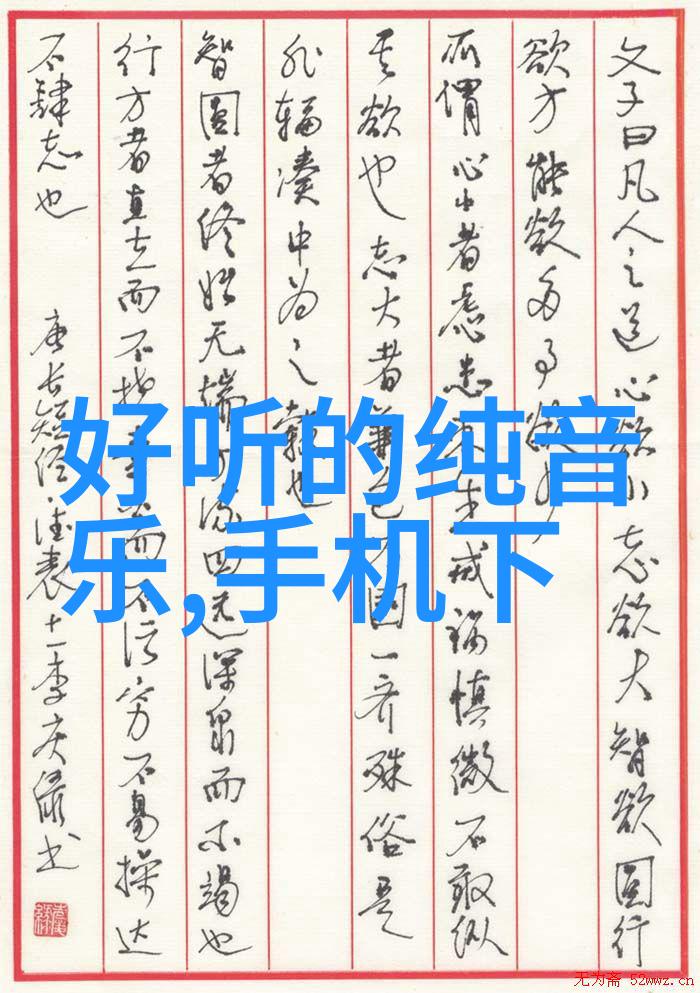 文子曰凡人之道心欲小志欲大智欲圆行
欲方能欲多事欲少
所谓心小者虑患未生戒祸慎微不敢纵
其欲也志大者兼包万国一齐殊俗是
非辐凑中为之毂也
智圆者终始无端方流四远深泉而不竭也
行方者直立而不挠素白而不污穷不易操达
不肆志也
唐长短经·德表十一李庆绿书
好听的纯音
乐,手机下
无为斋 52wwz.cn